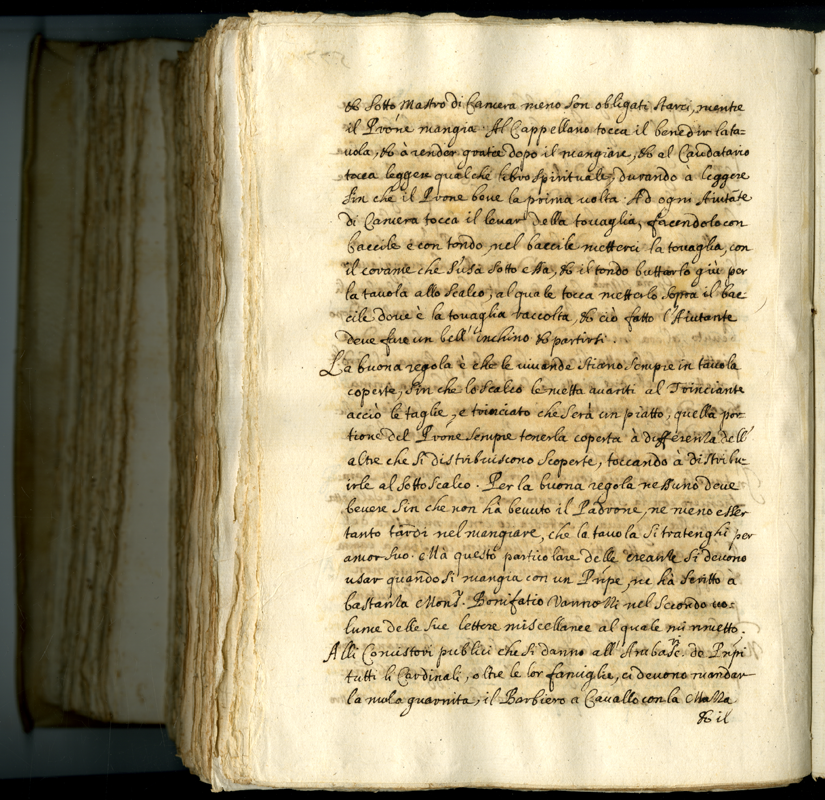 & Sotto Mastro di Camera meno son obligati starci, mentre
il Prõne mangia. Al Cappellano tocca il benedir la ta=
uola, & à render gratie dopo il mangiare, & al Caudatario
tocca leggere qualche libro spirituale, durando a leggere
sin che il Prone beue la prima uolta. Ad ogni Aiutãte
di Camera tocca il leuar della touaglia, facendolo con
baccile e con tondo, nel baccile metterci la touaglia, con
il corame che s'usa sotto essa, & il tondo buttarlo giù per
la tauola allo Scalco, al quale tocca metterlo sopra il bac=
cile doue è la touaglia raccolta, & ciò fatto l'Aiutante
deue fare un bell'inchino & partirsi.
La buona regola è che le uiuande stiano sempre in tauola
coperte, sin che lo Scalco le metta auanti al Trinciante
acciò le taglie, e trinciato che serà un piatto, quella por=
tione del Prone sempre tenerla coperta à differenza dell'
altre che si distribuiscono scoperte, toccando à distribu=
irle al Sotto Scalco. Per la buona regola nessuno deue
beuere sin che non ha beuuto il Padrone, ne meno esser
tanto tardi nel mangiare, che la tauola si tratenghi per
amor suo. Mà questo particolare delle creanze si deuono
usar quando si mangia con un Pñpe, ne hà scritto a
bastanza Mons.r Bonifatio Vannozzi nel secondo uo=
lume delle sue lettere miscellanee al quale mi rimetto.
Alli Concistori publici che si danno all' Ambasc.ri de Pñpi
tutti li Cardinali, oltre le lor famiglie, ci deuono mandar
la mula guarnita, il Barbiero a Cauallo con la Mazza
& il